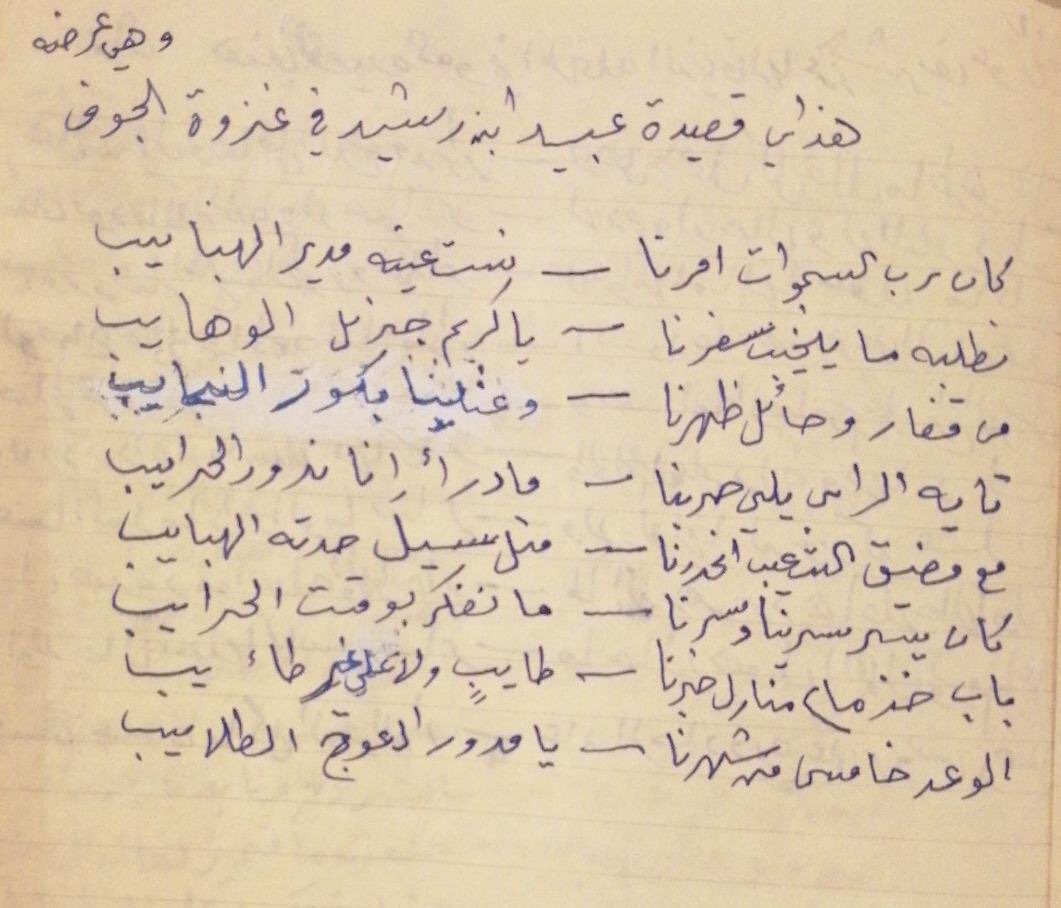 وهي عرضه
هذي قصيدة عبيد ابن رشيد في غزوة الجوف
كان رب السموات امرنا — نستعينه مدير الهبايب
نطلبه ما يخيب سفرنا — يا كريم جزيل الوهايب
من قفار وحائل ظهرنا — وعتلينا بكور النجايب
تايه الراي يلي حربنا — مادرا انا ندور الحرايب
مع مضيق الشعيب انحدرنا — مثل سيل حدته الهبايب
كان يسر سرينا وسرنا — ما نفكر بوقت الحرايب
باب خذماء منازل — طايبٍ ولا على غير طائيب
الوعد خامس من شهرنا — يا مدور العوج الطلايب